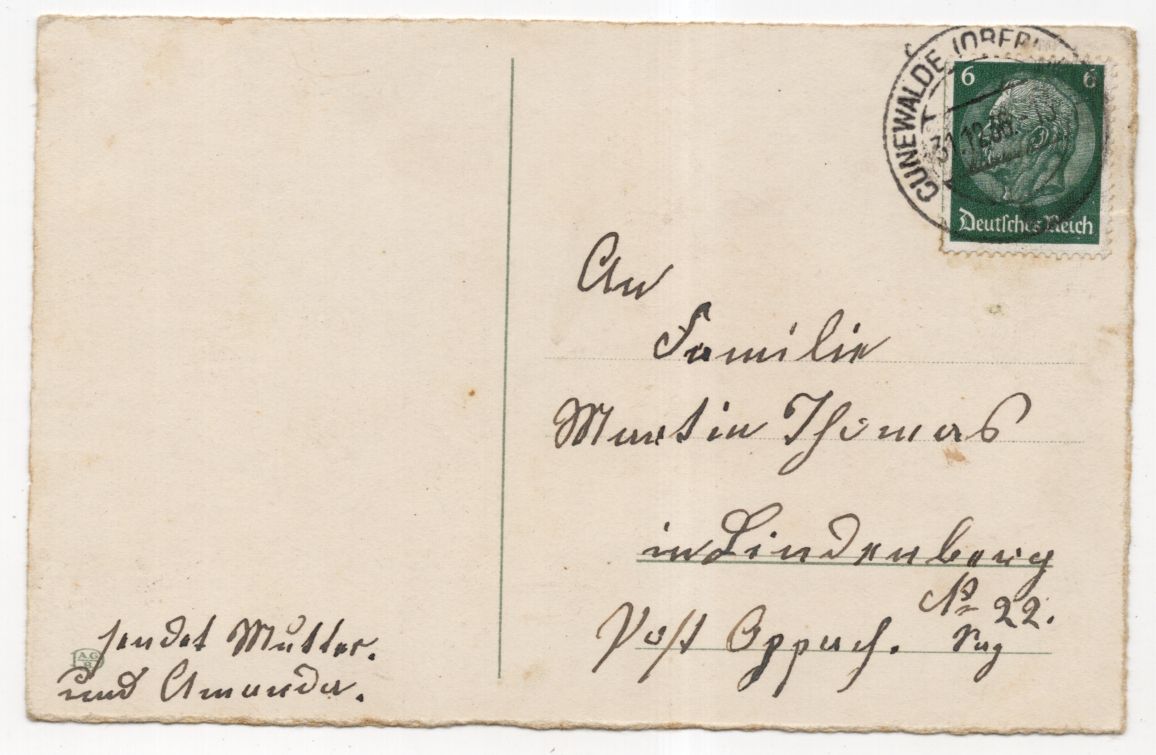 CUNEWALDE (OBER
31.12.36.
6 6
Deutsches Reich
An
Familie
Martin Thomas
in Lindenberg
No 22.
Post Oppach.
sendet Mutter.
und Amanda.
A.G.